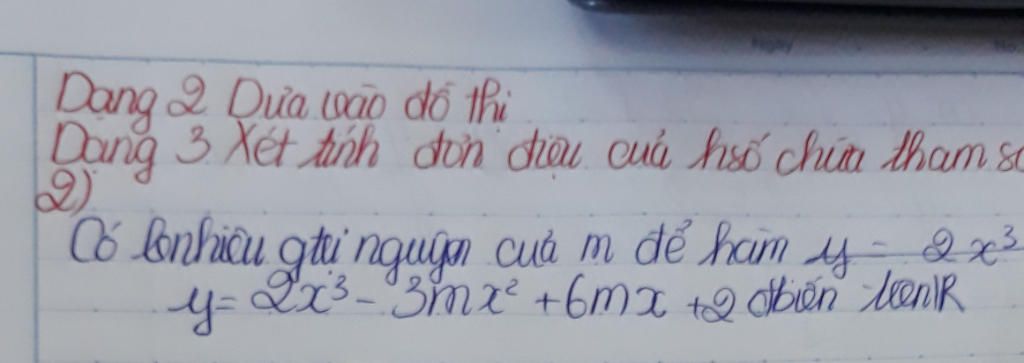 Ngày No:
Dạng 2 Dựa vào đồ thị
Dạng 3 Xét tính đơn điệu của hsố chứa tham số
2)
Có bnhiêu gtrị nguyên của m để hàm y = 2x³
y = 2x³ - 3mx² + 6mx + 2 đbiến trên ℝ